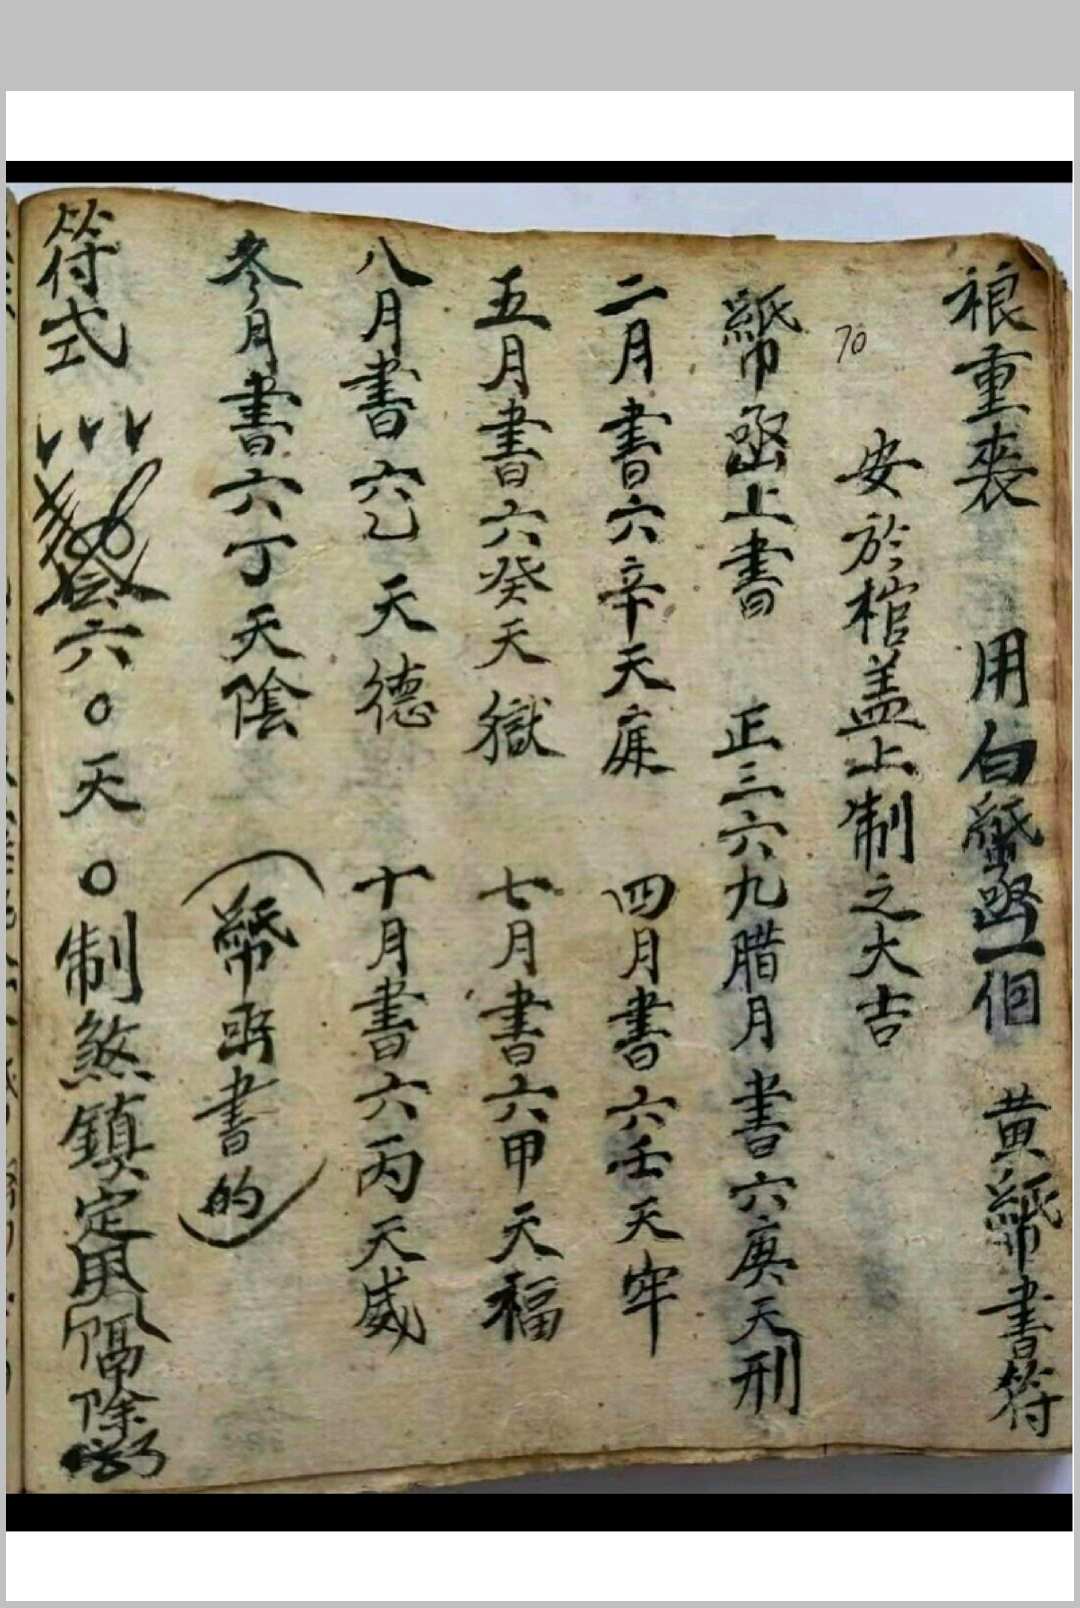 重喪 用白紙 一個 黃紙書符
安於棺盖上制之大吉
70
紙函上書 正三六九腊月書六庚天刑
二月書六辛天庭 四月書六壬天牢
五月書六癸天獄 七月書六甲天福
八月書六乙天德 十月書六丙天威
冬月書六丁天陰 (紙函書的)
符式 六〇天〇制煞鎮定用隔除